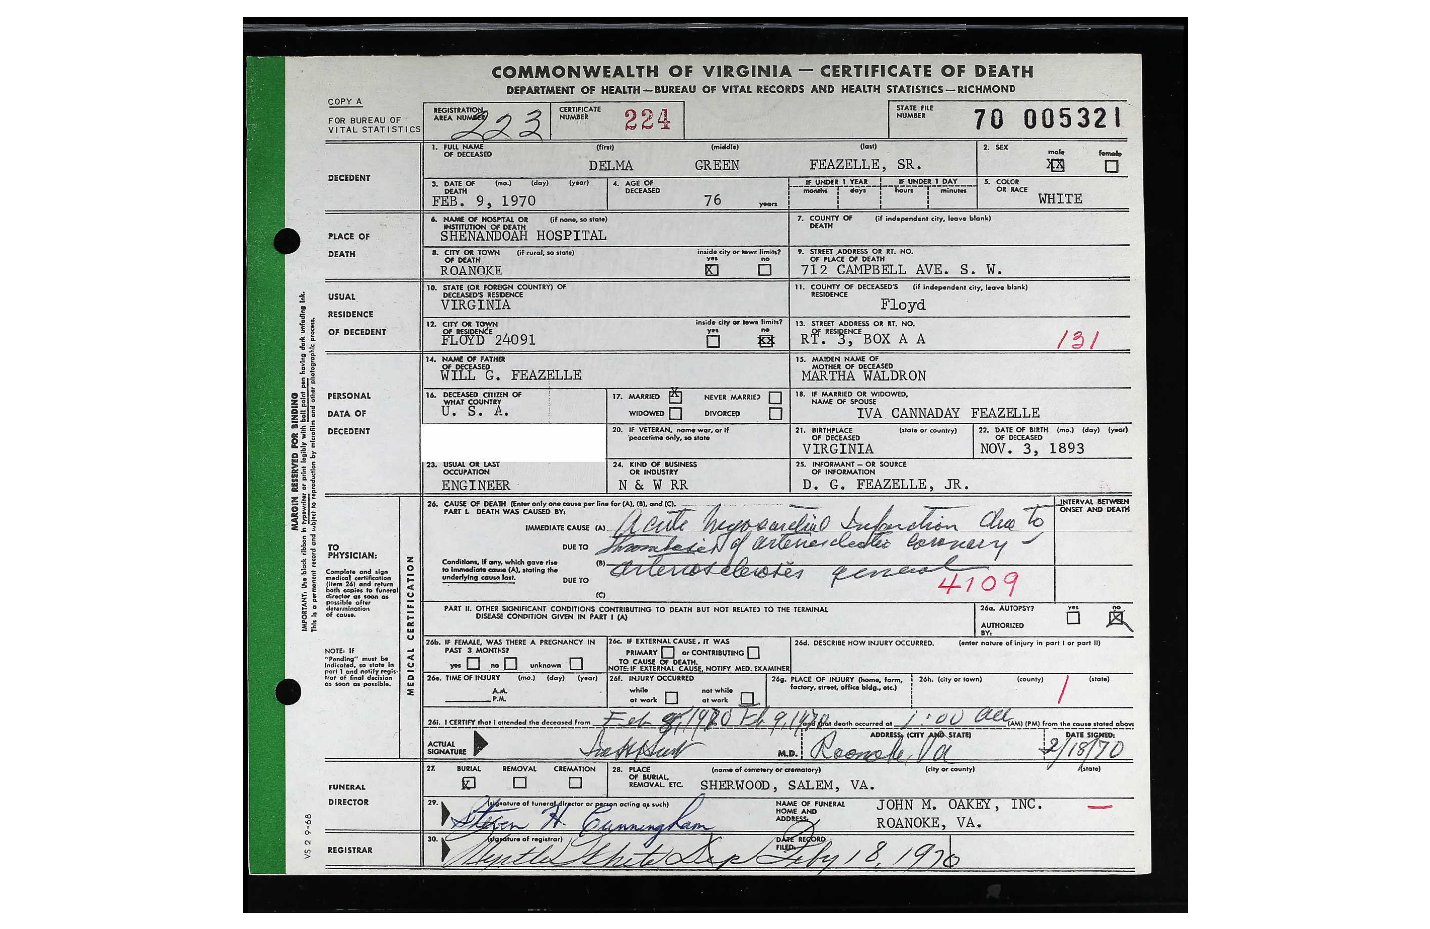 COMMONWEALTH OF VIRGINIA — CERTIFICATE OF DEATH
DEPARTMENT OF HEALTH — BUREAU OF VITAL RECORDS AND HEALTH STATISTICS — RICHMOND
COPY A
FOR BUREAU OF
VITAL STATISTICS
REGISTRATION
AREA NUMBER 223
CERTIFICATE
NUMBER 224
STATE FILE
NUMBER 70 005321
DECEDENT
1. FULL NAME (first) (middle) (last)
OF DECEASED
DELMA GREEN FEAZELLE, SR.
2. SEX male female
XX
3. DATE OF (mo.) (day) (year)
DEATH
FEB. 9, 1970
4. AGE OF
DECEASED
76 years
IF UNDER 1 YEAR IF UNDER 1 DAY
months days hours minutes
5. COLOR
OR RACE
WHITE
PLACE OF
DEATH
6. NAME OF HOSPITAL OR (if none, so state)
INSTITUTION OF DEATH
SHENANDOAH HOSPITAL
7. COUNTY OF (if independent city, leave blank)
DEATH
8. CITY OR TOWN (if rural, so state) inside city or town limits?
OF DEATH yes no
ROANOKE X
9. STREET ADDRESS OR RT. NO.
OF PLACE OF DEATH
712 CAMPBELL AVE. S. W.
USUAL
RESIDENCE
OF DECEDENT
10. STATE (OR FOREIGN COUNTRY) OF
DECEASED'S RESIDENCE
VIRGINIA
11. COUNTY OF DECEASED'S (if independent city, leave blank)
RESIDENCE
Floyd
12. CITY OR TOWN inside city or town limits?
OF RESIDENCE yes no
FLOYD 24091 XX
13. STREET ADDRESS OR RT. NO.
OF RESIDENCE
RT. 3, BOX A A
131
PERSONAL
DATA OF
DECEDENT
14. NAME OF FATHER
OF DECEASED
WILL G. FEAZELLE
15. MAIDEN NAME OF
MOTHER OF DECEASED
MARTHA WALDRON
16. DECEASED CITIZEN OF
WHAT COUNTRY
U. S. A.
17. MARRIED X NEVER MARRIED
WIDOWED DIVORCED
18. IF MARRIED OR WIDOWED,
NAME OF SPOUSE
IVA CANNADAY FEAZELLE
20. IF VETERAN, name war, or if
peacetime only, so state
21. BIRTHPLACE (state or country)
OF DECEASED
VIRGINIA
22. DATE OF BIRTH (mo.) (day) (year)
OF DECEASED
NOV. 3, 1893
23. USUAL OR LAST
OCCUPATION
ENGINEER
24. KIND OF BUSINESS
OR INDUSTRY
N & W RR
25. INFORMANT — OR SOURCE
OF INFORMATION
D. G. FEAZELLE, JR.
MARGIN RESERVED FOR BINDING
TO
PHYSICIAN:
Complete and sign
medical certification
(item 26) and return
both copies to funeral
director as soon as
possible after
determination
of cause.
NOTE: If
"Pending" must be
indicated, so state in
part 1 and notify regis-
trar of final decision
as soon as possible.
MEDICAL CERTIFICATION
26. CAUSE OF DEATH (Enter only one cause per line for (A), (B), and (C).
PART I. DEATH WAS CAUSED BY:
INTERVAL BETWEEN
ONSET AND DEATH
IMMEDIATE CAUSE (A) Acute myocardial Infarction due to
DUE TO thrombosis of arteriosclerotic coronary –
Conditions, if any, which gave rise
to immediate cause (A), stating the
underlying cause last.
(B) arteriosclerosis general
DUE TO
(C)
4109
PART II. OTHER SIGNIFICANT CONDITIONS CONTRIBUTING TO DEATH BUT NOT RELATED TO THE TERMINAL
DISEASE CONDITION GIVEN IN PART I (A)
26a. AUTOPSY? yes no
X
AUTHORIZED
BY:
26b. IF FEMALE, WAS THERE A PREGNANCY IN
PAST 3 MONTHS?
yes no unknown
26c. IF EXTERNAL CAUSE, IT WAS
PRIMARY or CONTRIBUTING
TO CAUSE OF DEATH.
NOTE: IF EXTERNAL CAUSE, NOTIFY MED. EXAMINER
26d. DESCRIBE HOW INJURY OCCURRED. (enter nature of injury in part I or part II)
26e. TIME OF INJURY (mo.) (day) (year)
A.M.
P.M.
26f. INJURY OCCURRED
while at work not while at work
26g. PLACE OF INJURY (home, farm,
factory, street, office bldg., etc.)
26h. (city or town) (county) (state)
26i. I CERTIFY that I attended the deceased from Feb 8, 1970 Feb 9, 1970 and that death occurred at 1:00 AM (AM) (PM) from the cause stated above
ACTUAL
SIGNATURE
M.D.
ADDRESS, (CITY AND STATE)
Roanoke, Va
DATE SIGNED:
2/18/70
FUNERAL
DIRECTOR
27. BURIAL REMOVAL CREMATION
X
28. PLACE (name of cemetery or crematory) (city or county) (state)
OF BURIAL,
REMOVAL, ETC.
SHERWOOD, SALEM, VA.
29. (signature of funeral director or person acting as such)
Steven H. Cunningham
NAME OF FUNERAL
HOME AND
ADDRESS
JOHN M. OAKEY, INC.
ROANOKE, VA.
REGISTRAR
30. (signature of registrar)
Myrtle White Dep
DATE RECORD
FILED
Feby 18, 1970
VS 2 9-68